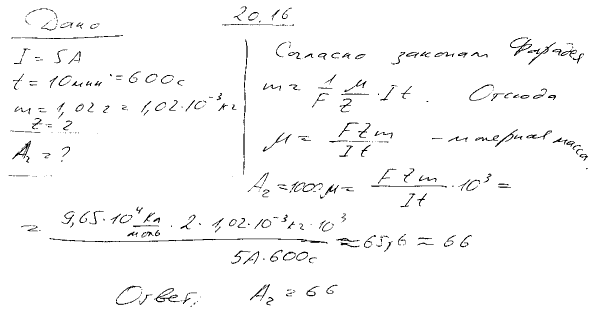 20.16
Дано
I = 5А
t = 10мин = 600с
m = 1,02г = 1,02·10⁻³кг
Z = 2
A₂ = ?
Согласно законам Фарадея
m = 1/F μ/Z · It. Отсюда
μ = FZm/It – молярная масса.
A₂ = 1000μ = FZm/It · 10³ =
= 9,65·10⁴ Кл/моль · 2 · 1,02·10⁻³кг·10³ / 5А·600с ≈ 65,6 ≈ 66
Ответ: A₂ = 66